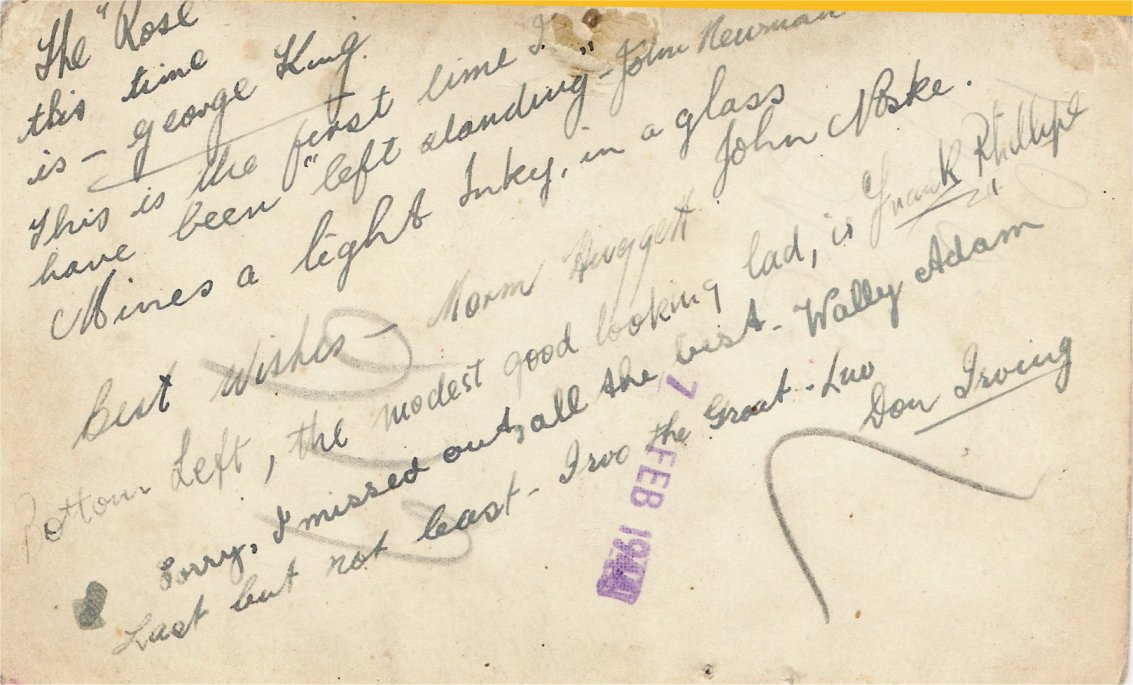 The "Rose
this time
is - George King.
This is the first time I
have been "left standing" - John Newman
Mines a light Inky, in a glass
John Noske.
Best Wishes - Norm Huggett
Bottom Left, the modest good looking lad, is Frank Phillips
Sorry, I missed out, all the best. Wally Adam
Last but not least - Irvo the Great - Luv
Don Irving
7 FEB